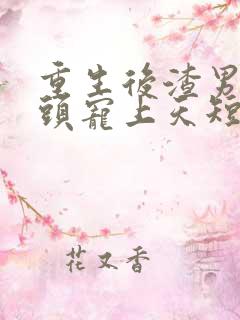 重生後渣男
頭寵上天短
花又香